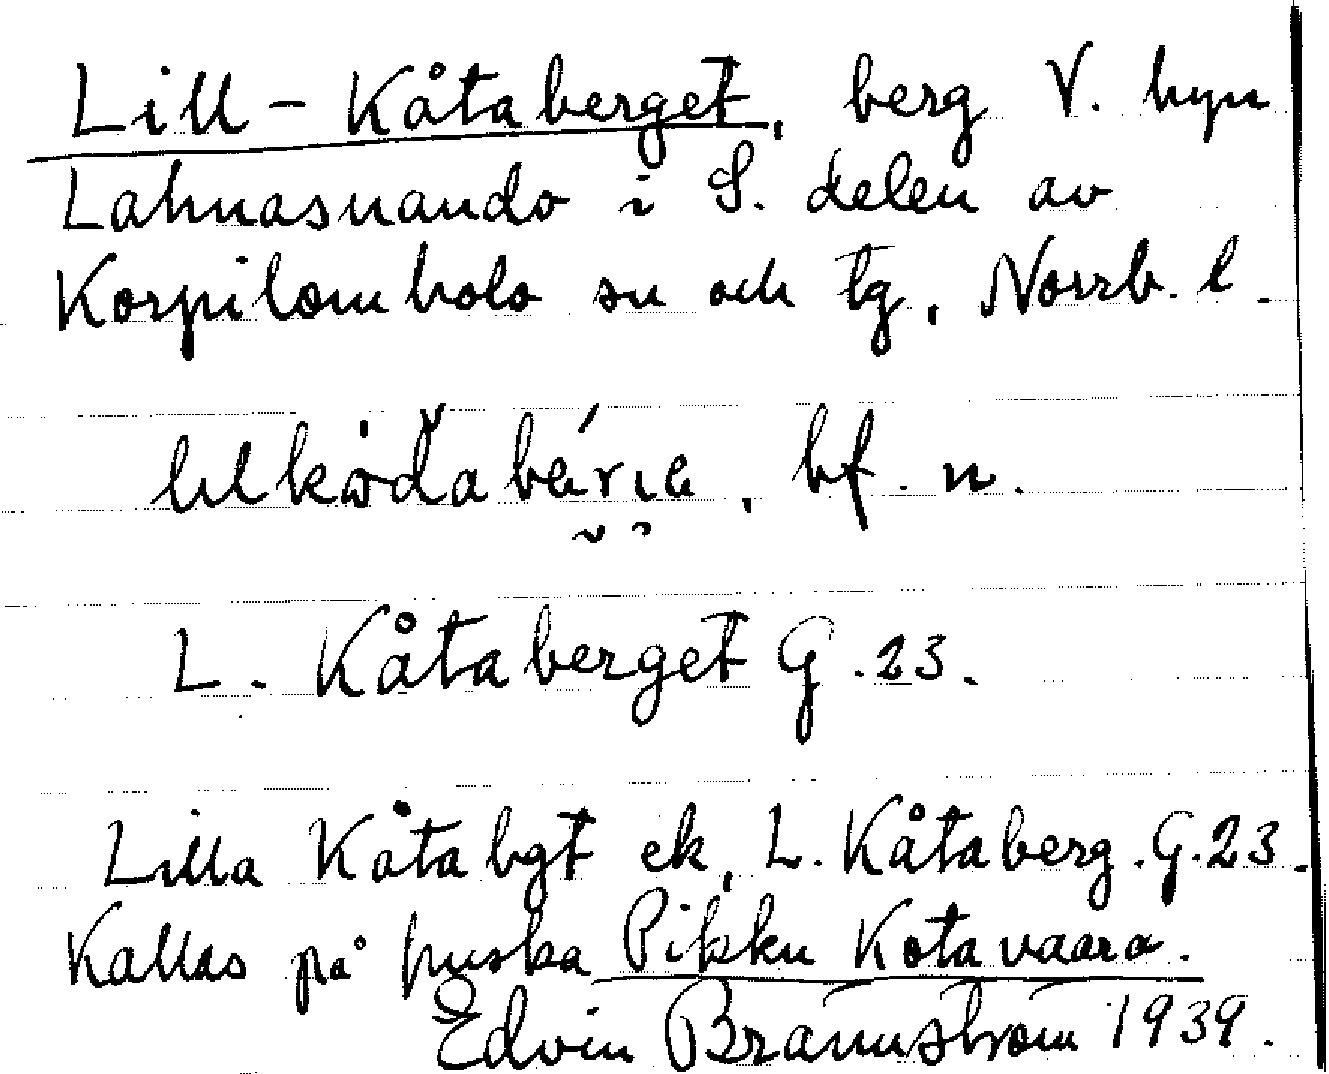 Lill-Kåtaberget, berg V. byn
Lahnasuando i S. delen av
Korpilombolo sn och tg, Norrb. l.
bf. n.
L. Kåtaberget G. 23.
Lilla Kåtabgt ek, L. Kåtaberg. G. 23.
Kallas på finska Pikku Kotavaara.
Edvin Brännström 1939.